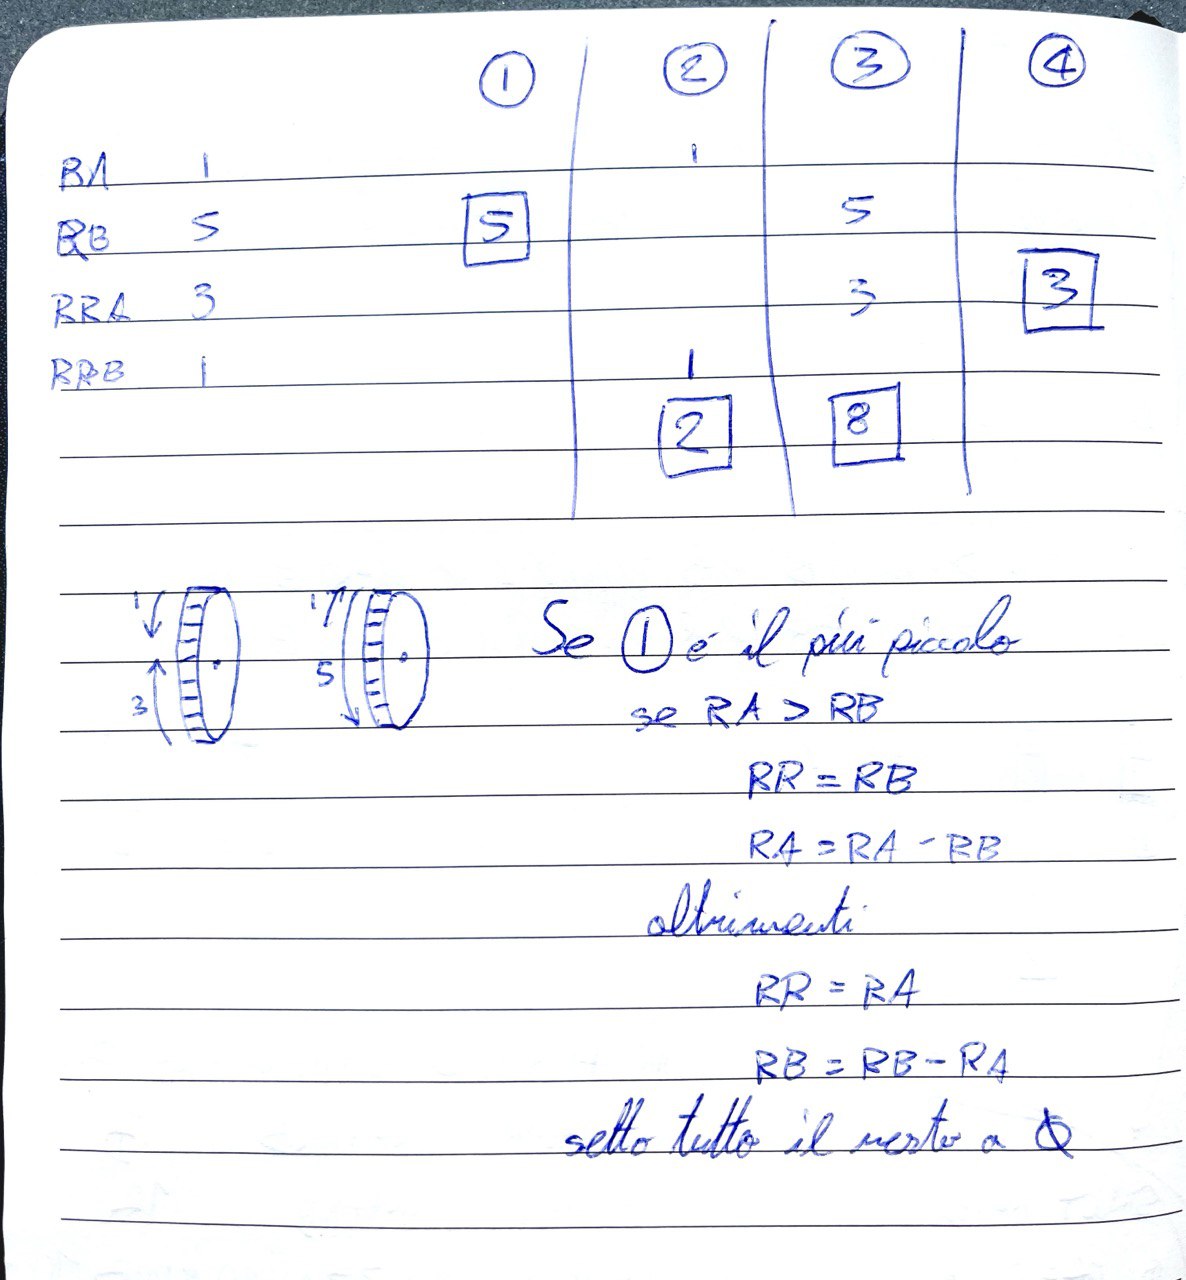 ① ② ③ ④
RA 1 1
RB 5 5 5
RRA 3 3 3
RRB 1 1
2 8
1 3 1 5
Se ① é il più piccolo
se RA > RB
RR = RB
RA = RA - RB
altrimenti
RR = RA
RB = RB - RA
setto tutto il resto a 0